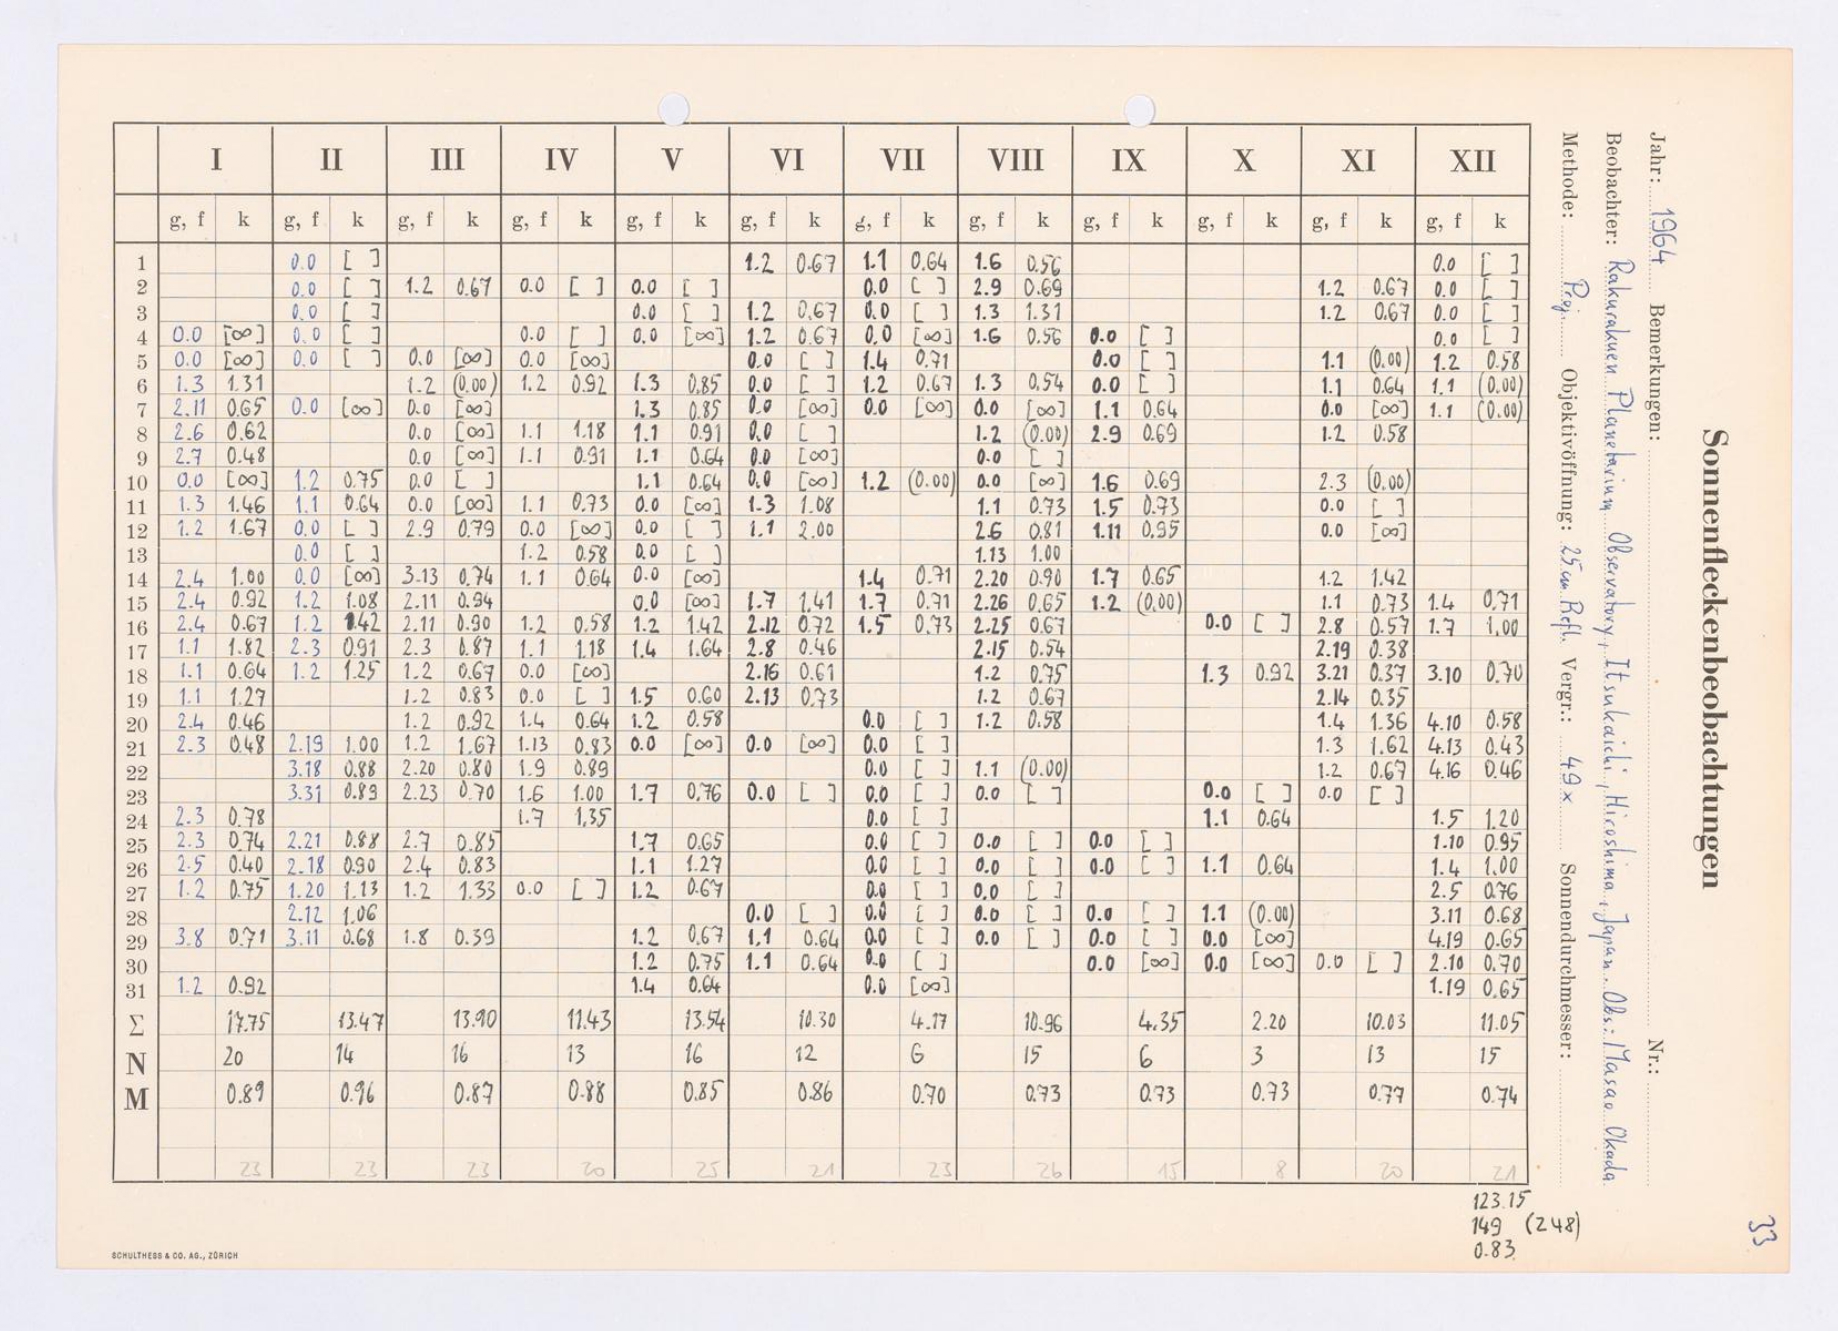 Sonnenfleckenbeobachtungen
Jahr: 1964 Bemerkungen: Nr.:
Beobachter: Rakurakuen Planetarium Observatory, Itsukaichi, Hiroshima, Japan. Obs.: Masao Okada.
Methode: Proj. Objektivöffnung: 25 cm Refl. Vergr.: 49 x Sonnendurchmesser:
I II III IV V VI VII VIII IX X XI XII
g, f k g, f k g, f k g, f k g, f k g, f k g, f k g, f k g, f k g, f k g, f k g, f k
1 0.0 [ ] 1.2 0.67 1.1 0.64 1.6 0.56 0.0 [ ]
2 0.0 [ ] 1.2 0.67 0.0 [ ] 0.0 [ ] 0.0 [ ] 2.9 0.69 1.2 0.67 0.0 [ ]
3 0.0 [ ] 0.0 [ ] 1.2 0.67 0.0 [ ] 1.3 1.31 1.2 0.67 0.0 [ ]
4 0.0 [∞] 0.0 [ ] 0.0 [ ] 0.0 [∞] 1.2 0.67 0.0 [∞] 1.6 0.56 0.0 [ ] 0.0 [ ]
5 0.0 [∞] 0.0 [ ] 0.0 [∞] 0.0 [∞] 0.0 [ ] 1.4 0.71 0.0 [ ] 1.1 (0.00) 1.2 0.58
6 1.3 1.31 1.2 (0.00) 1.2 0.92 1.3 0.85 0.0 [ ] 1.2 0.67 1.3 0.54 0.0 [ ] 1.1 0.64 1.1 (0.00)
7 2.11 0.65 0.0 [∞] 0.0 [∞] 1.3 0.85 0.0 [∞] 0.0 [∞] 0.0 [∞] 1.1 0.64 0.0 [∞] 1.1 (0.00)
8 2.6 0.62 0.0 [∞] 1.1 1.18 1.1 0.91 0.0 [ ] 1.2 (0.00) 2.9 0.69 1.2 0.58
9 2.7 0.48 0.0 [∞] 1.1 0.91 1.1 0.64 0.0 [∞] 0.0 [ ]
10 0.0 [∞] 1.2 0.75 0.0 [ ] 1.1 0.64 0.0 [∞] 1.2 (0.00) 0.0 [∞] 1.6 0.69 2.3 (0.00)
11 1.3 1.46 1.1 0.64 0.0 [∞] 1.1 0.73 0.0 [∞] 1.3 1.08 1.1 0.73 1.5 0.73 0.0 [ ]
12 1.2 1.67 0.0 [ ] 2.9 0.79 0.0 [∞] 0.0 [ ] 1.1 2.00 2.6 0.81 1.11 0.95 0.0 [∞]
13 0.0 [ ] 1.2 0.58 0.0 [ ] 1.13 1.00
14 2.4 1.00 0.0 [∞] 3.13 0.74 1.1 0.64 0.0 [∞] 1.4 0.71 2.20 0.90 1.7 0.65 1.2 1.42
15 2.4 0.92 1.2 1.08 2.11 0.94 0.0 [∞] 1.7 1.41 1.7 0.71 2.26 0.65 1.2 (0.00) 1.1 0.73 1.4 0.71
16 2.4 0.67 1.2 1.42 2.11 0.90 1.2 0.58 1.2 1.42 2.12 0.72 1.5 0.73 2.25 0.67 0.0 [ ] 2.8 0.57 1.7 1.00
17 1.1 1.82 2.3 0.91 2.3 0.87 1.1 1.18 1.4 1.64 2.8 0.46 2.15 0.54 2.19 0.38
18 1.1 0.64 1.2 1.25 1.2 0.67 0.0 [∞] 2.16 0.61 1.2 0.75 1.3 0.92 3.21 0.37 3.10 0.70
19 1.1 1.27 1.2 0.83 0.0 [ ] 1.5 0.60 2.13 0.73 1.2 0.67 2.14 0.35
20 2.4 0.46 1.2 0.92 1.4 0.64 1.2 0.58 0.0 [ ] 1.2 0.58 1.4 1.36 4.10 0.58
21 2.3 0.48 2.19 1.00 1.2 1.67 1.13 0.83 0.0 [∞] 0.0 [∞] 0.0 [ ] 1.3 1.62 4.13 0.43
22 3.18 0.88 2.20 0.80 1.9 0.89 0.0 [ ] 1.1 (0.00) 1.2 0.67 4.16 0.46
23 3.31 0.89 2.23 0.70 1.6 1.00 1.7 0.76 0.0 [ ] 0.0 [ ] 0.0 [ ] 0.0 [ ] 0.0 [ ]
24 2.3 0.78 1.7 1.35 0.0 [ ] 1.1 0.64 1.5 1.20
25 2.3 0.74 2.21 0.88 2.7 0.85 1.7 0.65 0.0 [ ] 0.0 [ ] 0.0 [ ] 1.10 0.95
26 2.5 0.40 2.18 0.90 2.4 0.83 1.1 1.27 0.0 [ ] 0.0 [ ] 0.0 [ ] 1.1 0.64 1.4 1.00
27 1.2 0.75 1.20 1.13 1.2 1.33 0.0 [ ] 1.2 0.67 0.0 [ ] 0.0 [ ] 2.5 0.76
28 2.12 1.06 0.0 [ ] 0.0 [ ] 0.0 [ ] 0.0 [ ] 1.1 (0.00) 3.11 0.68
29 3.8 0.71 3.11 0.68 1.8 0.39 1.2 0.67 1.1 0.64 0.0 [ ] 0.0 [ ] 0.0 [ ] 0.0 [∞] 4.19 0.65
30 1.2 0.75 1.1 0.64 0.0 [ ] 0.0 [∞] 0.0 [∞] 0.0 [ ] 2.10 0.70
31 1.2 0.92 1.4 0.64 0.0 [∞] 1.19 0.65
Σ 17.75 13.47 13.90 11.43 13.54 10.30 4.17 10.96 4.35 2.20 10.03 11.05
N 20 14 16 13 16 12 6 15 6 3 13 15
M 0.89 0.96 0.87 0.88 0.85 0.86 0.70 0.73 0.73 0.73 0.77 0.74
23 23 23 20 25 21 23 26 15 8 20 21
123.15
149 (248)
0.83
33
SCHULTHESS & CO. AG., ZÜRICH